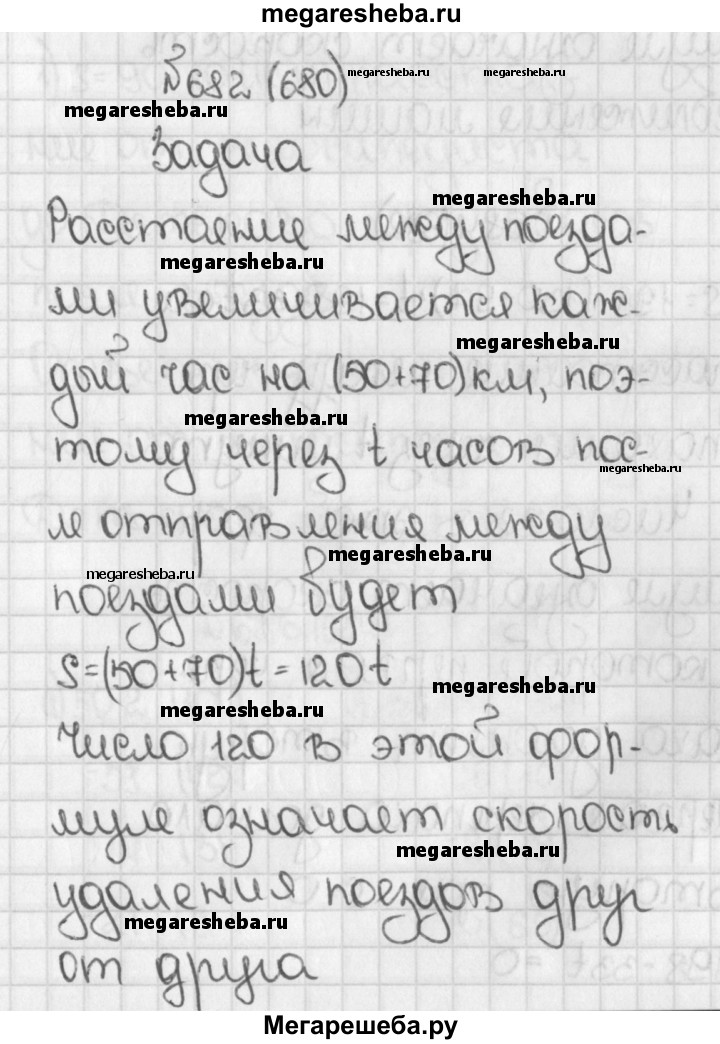 megaresheba.ru
№682 (680) megaresheba.ru megaresheba.ru
megaresheba.ru
Задача
megaresheba.ru
Расстояние между поезда-
megaresheba.ru
ми увеличивается каж-
megaresheba.ru
дый час на (50+70)км, поэ-
megaresheba.ru
тому через t часов пос-
megaresheba.ru
ле отправления между
megaresheba.ru
megaresheba.ru
поездами будет
S=(50+70)t=120t
megaresheba.ru
megaresheba.ru
Число 120 в этой фор-
муле означает скорость
megaresheba.ru
удаления поездов друг
megaresheba.ru
от друга
Мегарешеба.ру